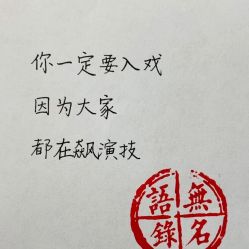 你一定要入戏
因为大家
都在飙演技
無名
語錄